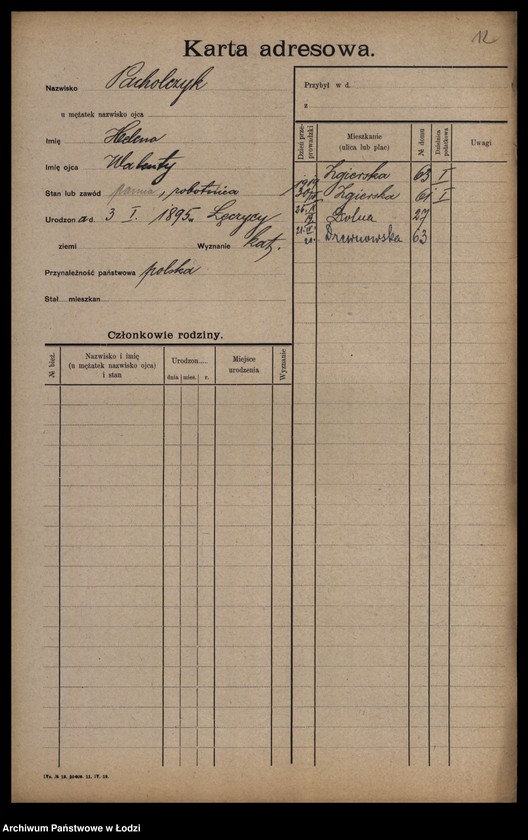 12
Karta adresowa.
Nazwisko Pacholczyk
u mężatek nazwisko ojca
Imię Helena
Imię ojca Walenty
Stan lub zawód panna, robotnica
Urodzona d. 3 I. 1895 Łęczycy
ziemi Wyznanie kat.
Przynależność państwowa polska
Stał. mieszkan.
Członkowie rodziny.
№ bież.
Nazwisko i imię
(u mężatek nazwisko ojca)
i stan
Urodzon.....
dnia mies. r.
Miejsce
urodzenia
Wyznanie
Przybył w d.
z
Dzień prze-
prowadzki
Mieszkanie
(ulica lub plac)
№ domu
Dzielnica
podatkowa
Uwagi
Zgierska 63 I
Zgierska 61 I
Dolna 27
Drewnowska 63
Archiwum Państwowe w Łodzi